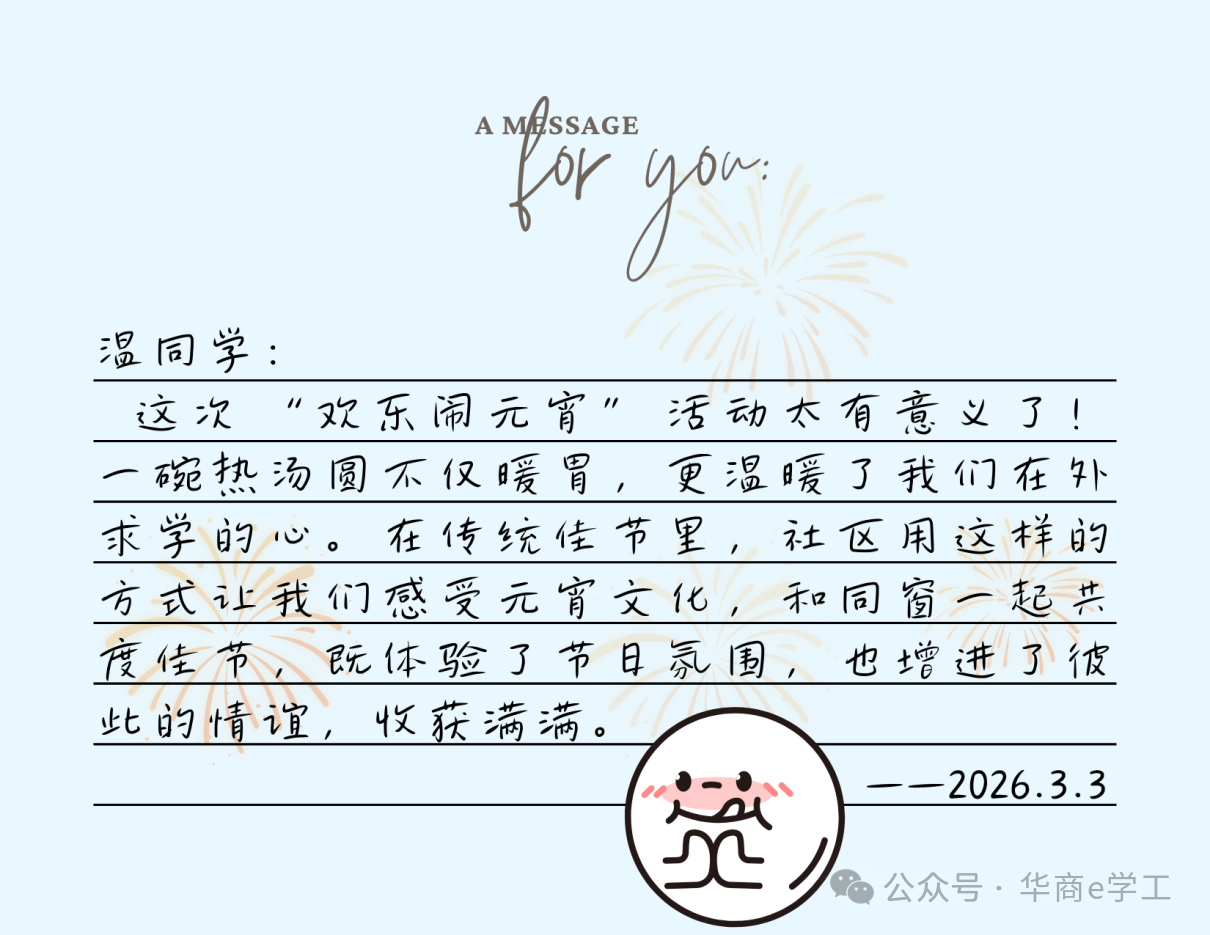 A MESSAGE
for you:
温同学：
这次“欢东闹元宵”活动太有意义了！
一碗热汤圆不仅暖胃，更温暖了我们在外
求学的心。在传统佳节里，社区用这样的
方式让我们感受元宵文化，和同窗一起共
度佳节，既体验了节日氛围，也增进了彼
此的情谊，收获满满。
——2026.3.3
公众号·华商e学工